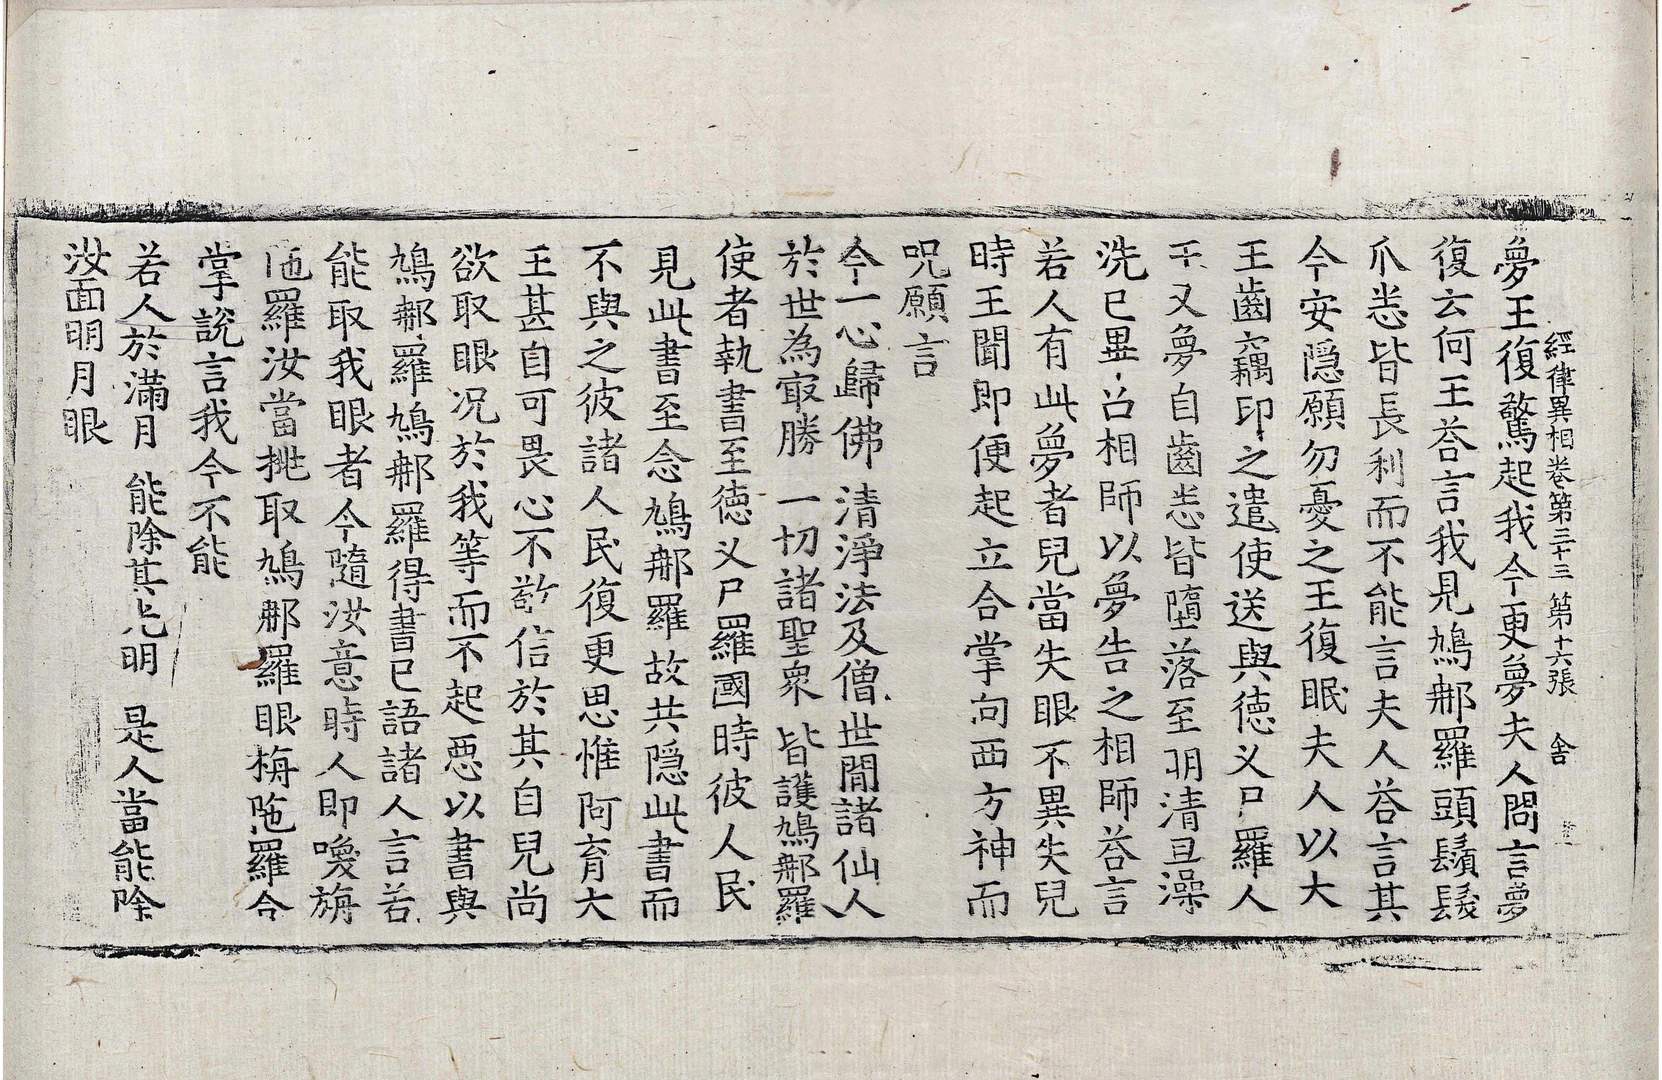 經律異相卷第三十三 第十六張 舍
夢王復驚起我今更夢夫人問言夢
復云何王荅言我見鳩𨚗羅頭鬚髮
爪悉皆長利而不能言夫人荅言其
今安隱願勿憂之王復眠夫人以大
王齒竊印之遣使送與德叉尸羅人
王又夢自齒悉皆墮落至明清旦澡
洗已畢召相師以夢告之相師荅言
若人有此夢者兒當失眼不異失兒
時王聞即便起立合掌向四方神而
呪願言
今一心歸佛 清淨法及僧 世間諸仙人
於世為㝡勝 一切諸聖衆 皆護鳩𨚗羅
使者執書至德叉尸羅國時彼人民
見此書至念鳩𨚗羅故共隱此書而
不與之彼諸人民復更思惟阿育大
王甚自可畏心不敬信於其自兒尚
欲取眼况於我等而不起惡以書與
鳩𨚗羅鳩𨚗羅得書已語諸人言若
能取我眼者今隨汝意時人即喚旃
陁羅汝當挑取鳩𨚗羅眼栴陁羅合
掌說言我今不能
若人於滿月 能除其光明 是人當能除
汝面明月眼